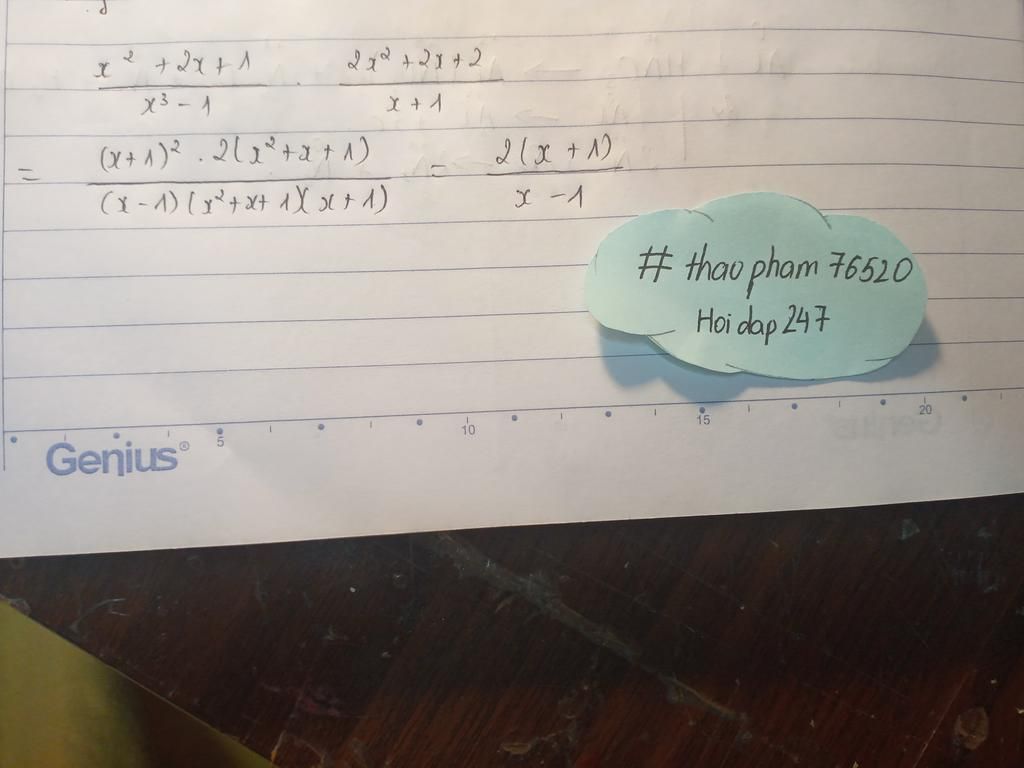 x² + 2x + 1 / x³ - 1 . 2x² + 2x + 2 / x + 1
= (x+1)² . 2(x² + x + 1) / (x - 1)(x² + x + 1)(x + 1) = 2(x + 1) / x - 1
# thaopham76520
Hoidap247
5 10 15 20
Genius®